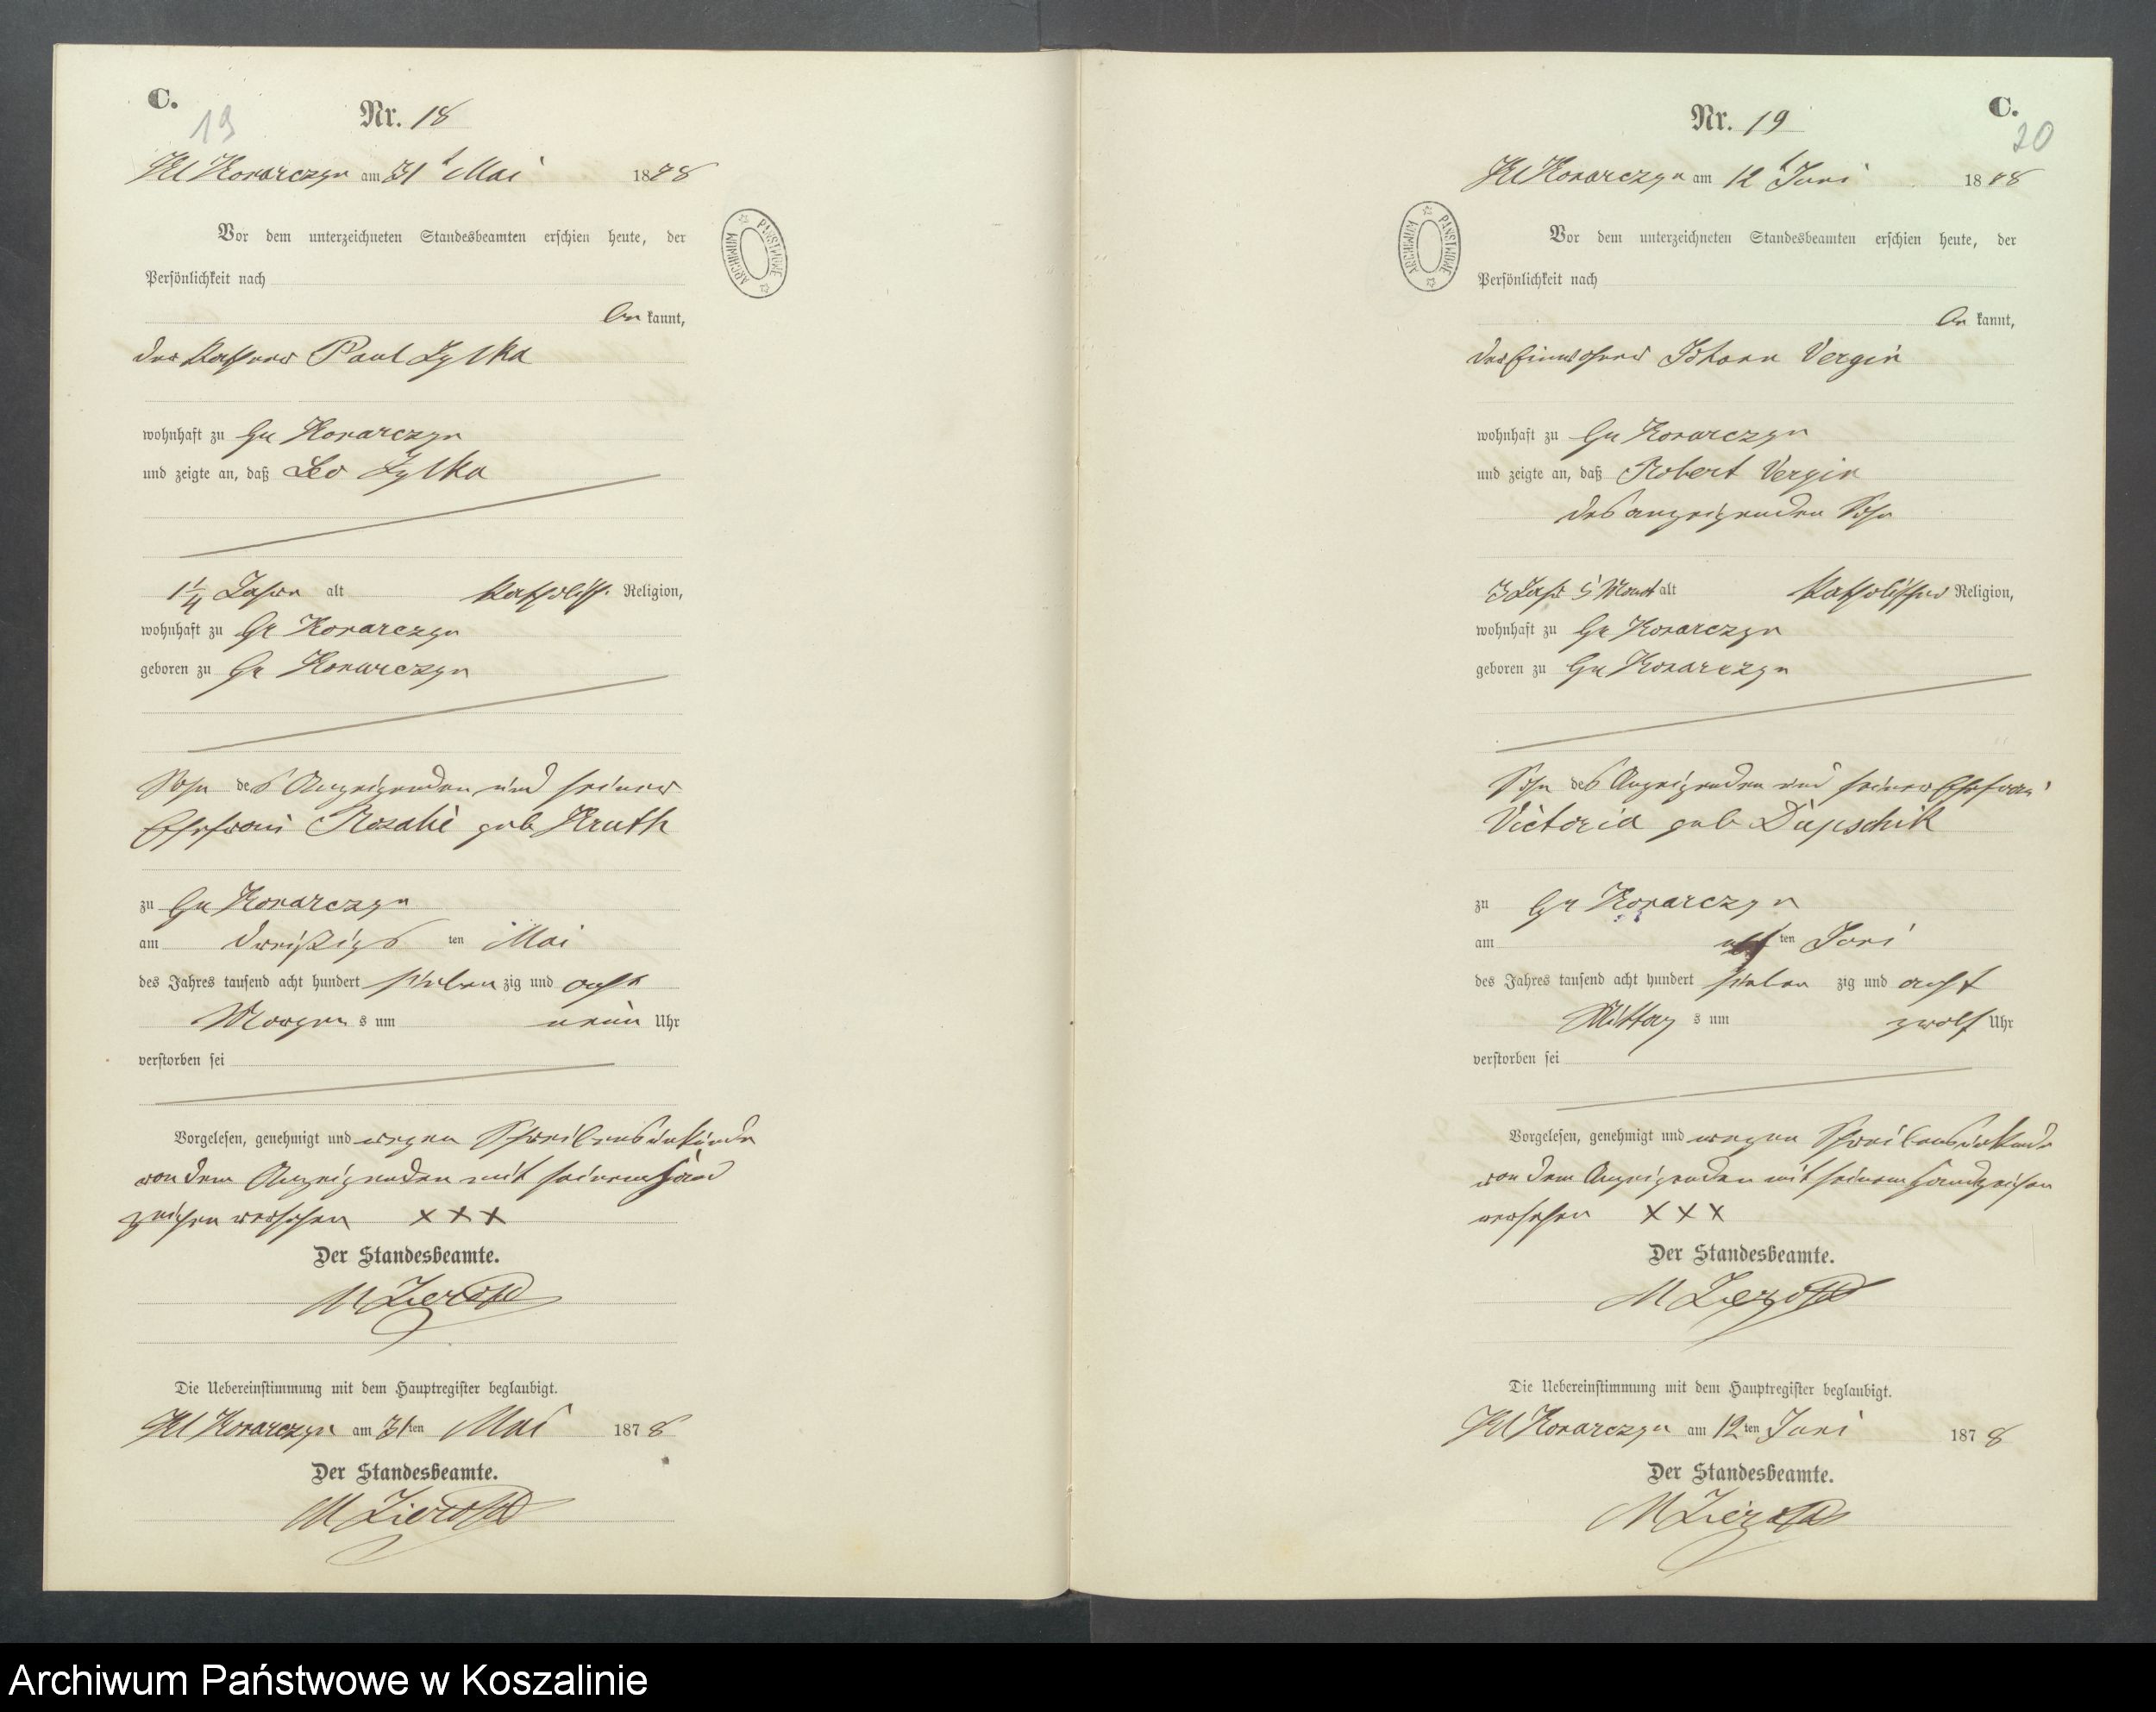 C.
19
Nr. 18
Kl Konarczyn am 31 t Mai 1878
Vor dem unterzeichneten Standesbeamten erschien heute, der
Persönlichkeit nach
be kannt,
der Käthner Paul Zylka
wohnhaft zu Gr Konarczyn
und zeigte an, daß Leo Zylka
1 1/4 Jahre alt katholisch. Religion,
wohnhaft zu Gr Konarczyn
geboren zu Gr Konarczyn
Sohn des Anzeigenden und seiner
Ehefrau Rosalie geb Kruth
zu Gr Konarczyn
am dreißigs ten Mai
des Jahres tausend acht hundert sieben zig und acht
Morgen s um neun Uhr
verstorben sei
Vorgelesen, genehmigt und wegen Schreibensunkunde
von dem Anzeigenden mit seinem Hand
zeichen versehen XXX
Der Standesbeamte.
Die Uebereinstimmung mit dem Hauptregister beglaubigt.
Kl Konarczyn am 31ten Mai 1878
Der Standesbeamte.
ARCHIWUM PAŃSTWOWE
C.
20
Nr. 19
Kl Konarczyn am 12 t Juni 1878
Vor dem unterzeichneten Standesbeamten erschien heute, der
Persönlichkeit nach
be kannt,
der Einwohner Johann Vergin
wohnhaft zu Gr Konarczyn
und zeigte an, daß Robert Vergin
des anzeigenden Sohn
3 Jahr 5 Monat alt katholischer Religion,
wohnhaft zu Gr Konarczyn
geboren zu Gr Konarczyn
Sohn des Anzeigenden und seiner Ehefrau
Victoria geb Dupschik
zu Gr Konarczyn
am elf ten Juni
des Jahres tausend acht hundert sieben zig und acht
Mittag s um zwölf Uhr
verstorben sei
Vorgelesen, genehmigt und wegen Schreibensunkunde
von dem Anzeigenden mit seinem Handzeichen
versehen XXX
Der Standesbeamte.
Die Uebereinstimmung mit dem Hauptregister beglaubigt.
Kl Konarczyn am 12ten Juni 1878
Der Standesbeamte.
ARCHIWUM PAŃSTWOWE
Archiwum Państwowe w Koszalinie